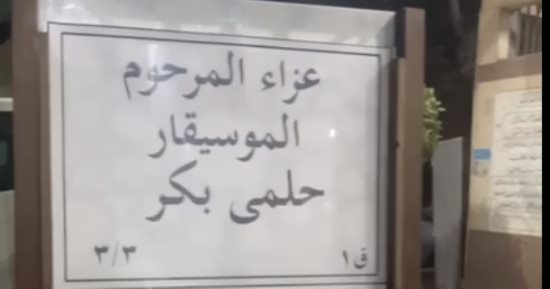 عزاء المرحوم
الموسيقار
حلمى بكر
ق ١ ٣/٣